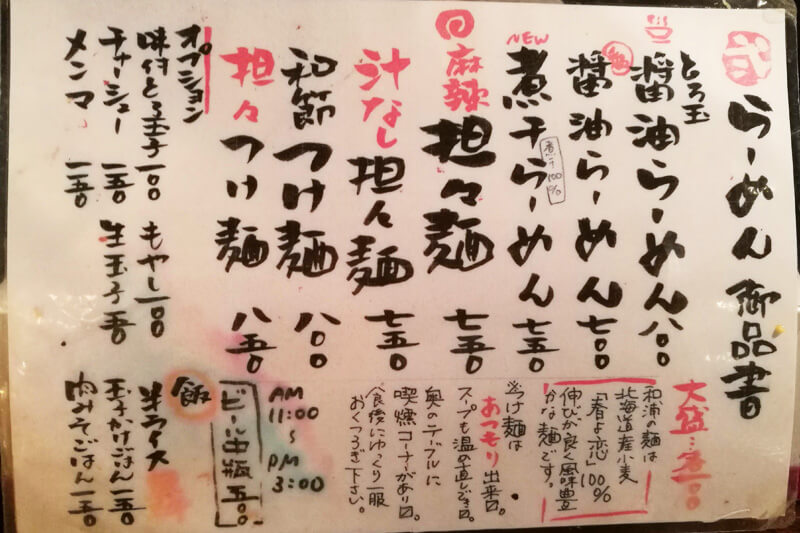 らーめん 御品書
とろ玉
醤油らーめん 八〇〇
醤油らーめん 七〇〇
NEW
煮干らーめん 七五〇
煮干100%
麻辣担々麺 七五〇
汁なし担々麺 七五〇
和節つけ麺 八〇〇
担々つけ麺 八五〇
オプション
味付とろ玉子 一〇〇
チャーシュー 一五〇
メンマ 一五〇
もやし 一〇〇
生玉子 五〇
大盛 一〇〇
和浦の麺は
北海道産小麦
「春よ恋」100%
伸びが良く風味豊
かな麺です。
つけ麺は
あつもり出来〼。
スープも温め直しでき〼。
奥のテーブルに
喫煙コーナーがあり〼。
食後にゆっくり一服
おくつろぎ下さい。
AM
11:00
〜
PM
3:00
ビール中瓶 五〇〇
飯
半ライス
玉子かけごはん 一五〇
肉みそごはん 一五〇